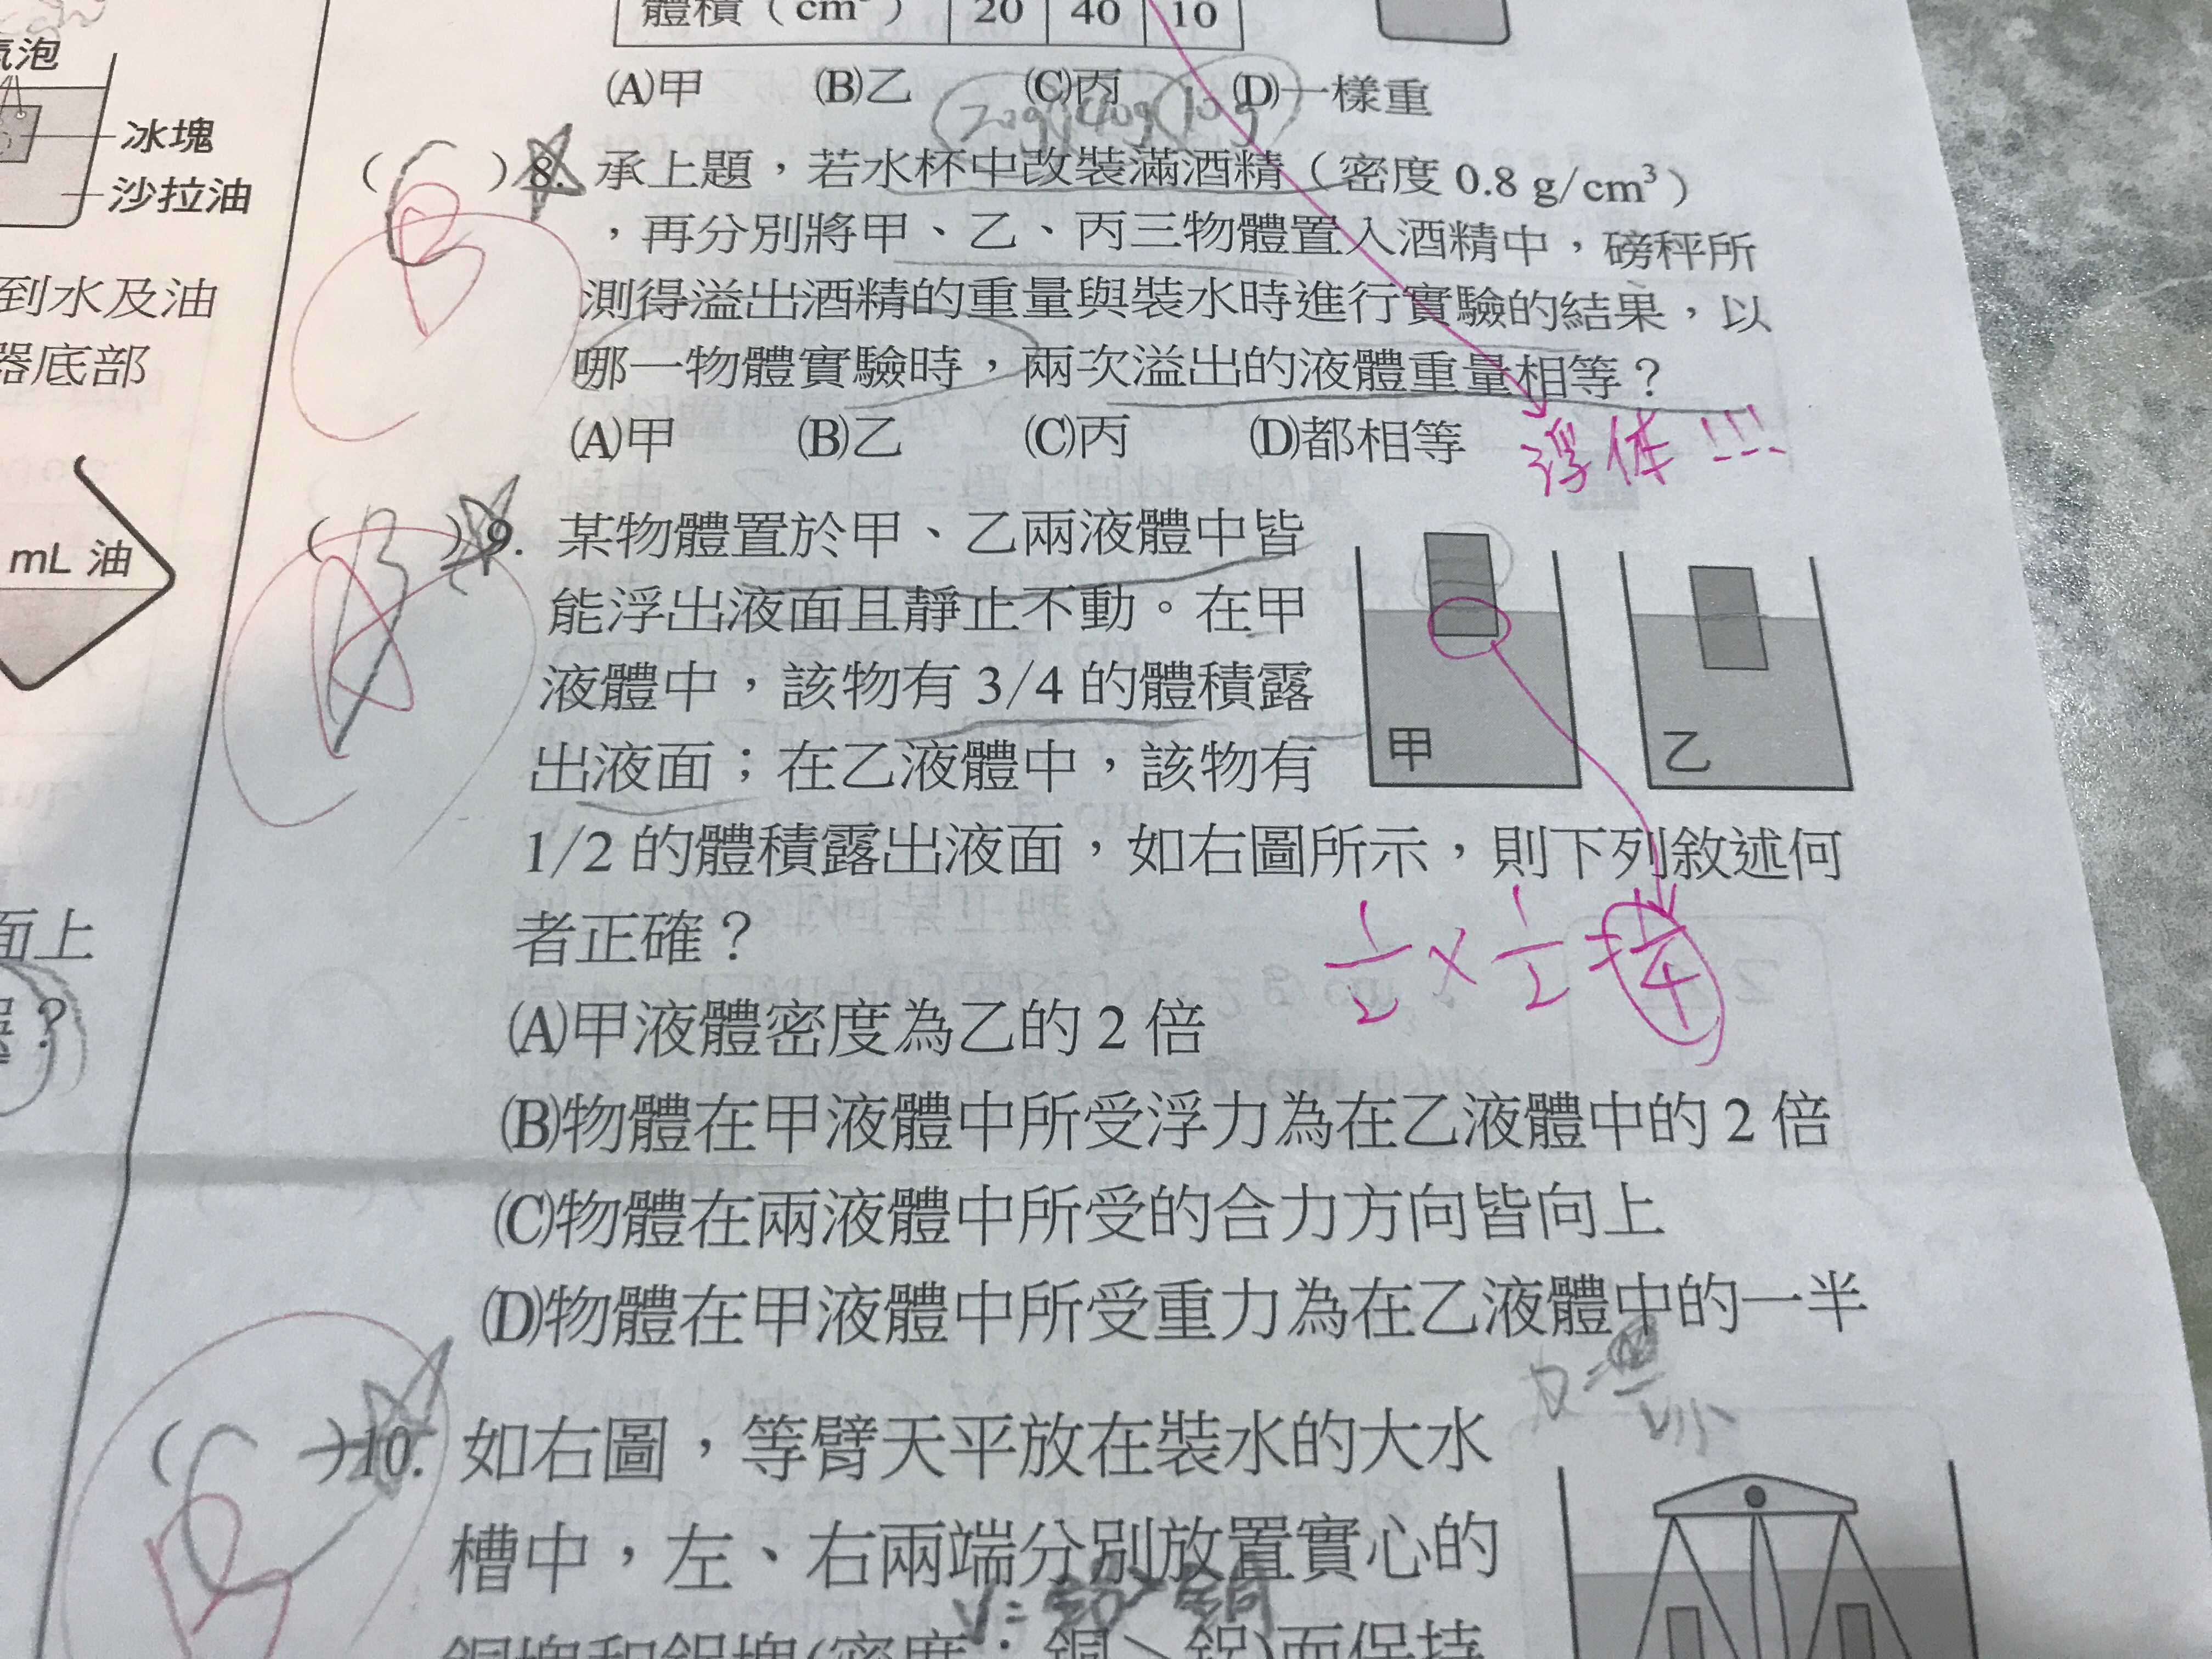 體積（cm³） 20 40 10
(A)甲 (B)乙 (C)丙 (D)一樣重
20g 40g 10g
氣泡
冰塊
沙拉油
到水及油
器底部
mL 油
面上
？
( C ) 8. 承上題，若水杯中改裝滿酒精（密度 0.8 g/cm³）
B
，再分別將甲、乙、丙三物體置入酒精中，磅秤所
測得溢出酒精的重量與裝水時進行實驗的結果，以
哪一物體實驗時，兩次溢出的液體重量相等？
(A)甲 (B)乙 (C)丙 (D)都相等
浮体!!!
( B ) 9. 某物體置於甲、乙兩液體中皆
A
能浮出液面且靜止不動。在甲
液體中，該物有 3/4 的體積露
出液面；在乙液體中，該物有
甲 乙
1/2 的體積露出液面，如右圖所示，則下列敘述何
者正確？
1/2 × 1/2 = 1/4
(A)甲液體密度為乙的 2 倍
(B)物體在甲液體中所受浮力為在乙液體中的 2 倍
(C)物體在兩液體中所受的合力方向皆向上
(D)物體在甲液體中所受重力為在乙液體中的一半
( C ) 10. 如右圖，等臂天平放在裝水的大水
槽中，左、右兩端分別放置實心的
V=鋁>銅
銅塊和鋁塊(密度：銅＞鋁)而保持